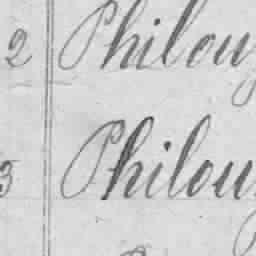 2 Philou
3 Philou